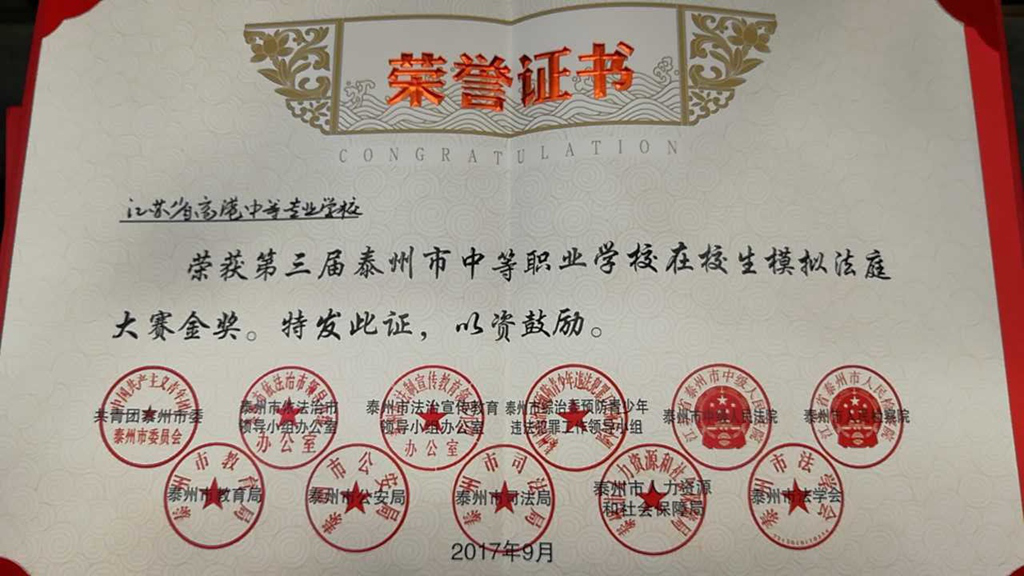 荣誉证书
CONGRATULATION
江苏省高港中等专业学校
荣获第三届泰州市中等职业学校在校生模拟法庭
大赛金奖。特发此证，以资鼓励。
共青团泰州市委
泰州市委员会
泰州市依法治市
领导小组办公室
办公室
泰州市法治宣传教育
领导小组办公室
办公室
泰州市综治委预防青少年
违法犯罪工作领导小组
泰州市中级人民法院
泰州市人民检察院
泰州市教育局
泰州市公安局
泰州市司法局
泰州市人力资源
和社会保障局
泰州市法学会
2017年9月